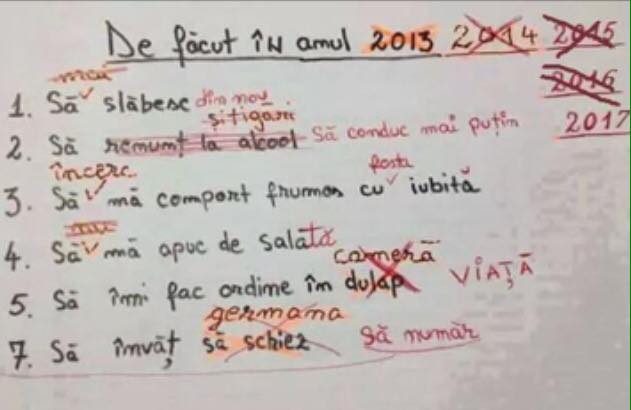 De făcut ÎN anul 2013 2014 2015
2016
2017
mai
1. Să slăbesc din nou
și țigări
2. Să renunț la alcool Să conduc mai puțin
încerc fosta
3. Să mă comport frumos cu iubită
4. Să mă apuc de salată
cameră
5. Să îmi fac ordine în dulap VIAȚĂ
germana
7. Să învăț să schiez să număr